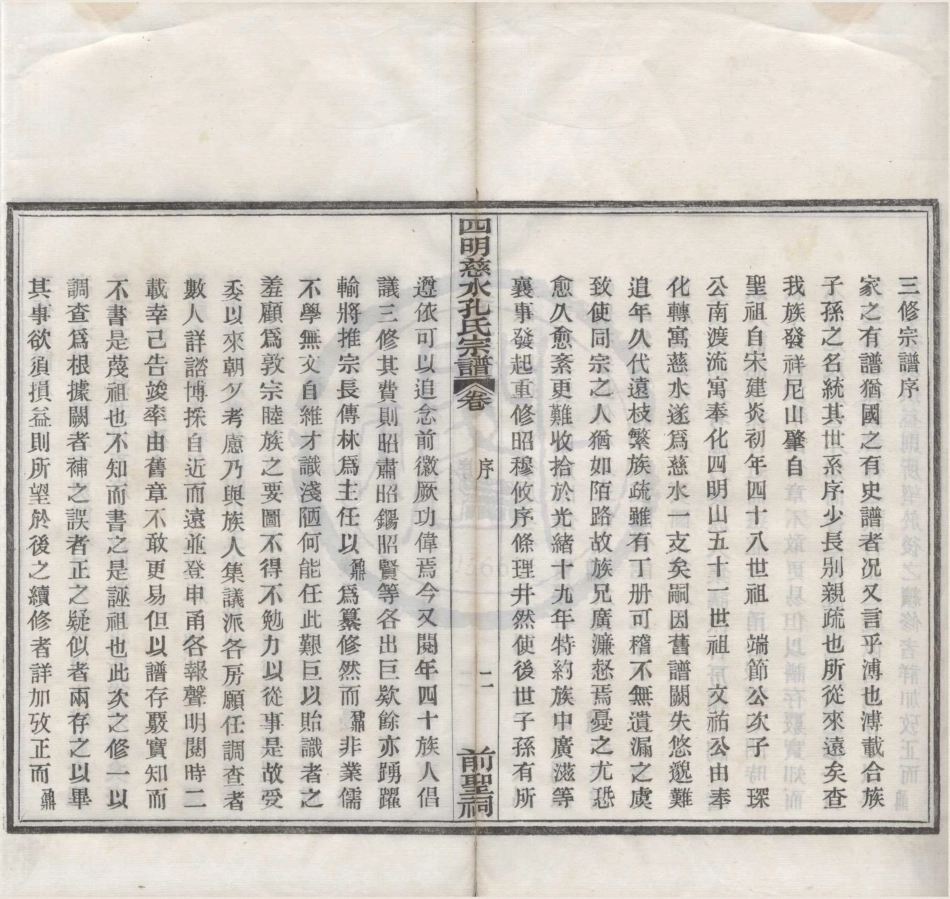 三修宗譜序
家之有譜猶國之有史譜者况又言乎溥也溥載合族
子孫之名統其世系序少長別親疏也所從來遠矣查
我族發祥尼山肇自
聖祖自宋建炎初年四十八世祖 端節公次子 琛
公南渡流寓奉化四明山五十二世祖 文祐公由奉
化轉寓慈水遂爲慈水一支矣嗣因舊譜闕失悠邈難
追年久代遠枝繁族疏雖有丁册可稽不無遺漏之虞
致使同宗之人猶如陌路故族兄廣濂惄焉憂之尤恐
愈久愈紊更難收拾於光緒十九年特約族中廣滋等
襄事發起重修昭穆攸序條理井然使後世子孫有所
四明慈水孔氏宗譜 卷 序 二 前聖祠
遵依可以追念前徽厥功偉焉今又閱年四十族人倡
議三修其費則昭肅昭鍚昭賢等各出巨欵餘亦踴躍
輸將推宗長傳林爲主任以鼐爲纂修然而鼐非業儒
不學無文自維才識淺陋何能任此艱巨以貽識者之
羞顧爲敦宗睦族之要圖不得不勉力以從事是故受
委以來朝夕考慮乃與族人集議派各房願任調查者
數人詳諮博採自近而遠並登申甬各報聲明閱時二
載幸己告竣率由舊章不敢更易但以譜存覈實知而
不書是蔑祖也不知而書之是誣祖也此次之修一以
調查爲根據闕者補之誤者正之疑似者兩存之以畢
其事欲須損益則所望於後之續修者詳加攷正而鼐